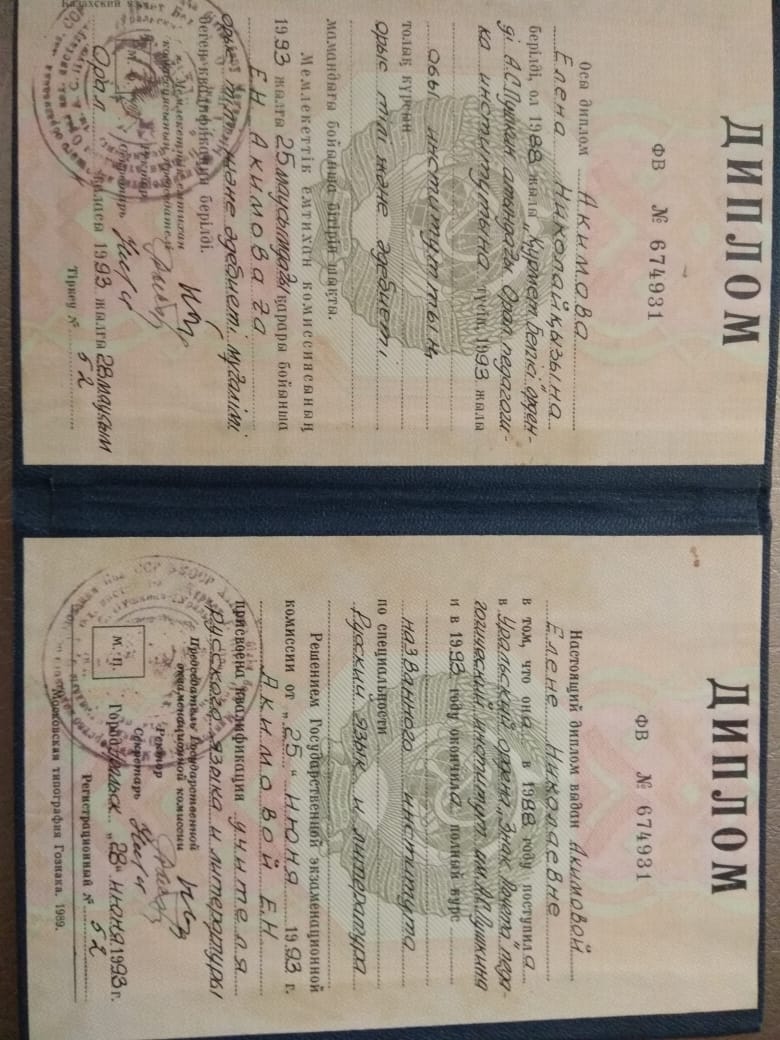 ДИПЛОМ
ФВ № 674931
Осы диплом Акимова
Елена Николайқызына
берілді, ол 1988 жылы „Құрмет Белгісі" орден-
ді А.С.Пушкин атындағы Орал педагоги-
ка институтына түсіп, 1993 жылы
осы институттың
толық курсын
орыс тілі және әдебиеті
мамандығы бойынша бітіріп шықты.
Мемлекеттік емтихан комиссиясының
1993 жылғы 25 маусымдағы қарары бойынша
Е Н Акимова ға
орыс тілі және әдебиеті мұғалімі
деген квалификация берілді.
Мемлекеттік емтихан
комиссиясының председателі
Ректор
Секретарь
Орал қаласы 1993 жылғы 28 маусым
Тіркеу № 52
ДИПЛОМ
ФВ № 674931
Настоящий диплом выдан Акимовой
Елене Николаевне
в том, что она в 1988 году поступила
в Уральский ордена „Знак Почета" педа-
гогический институт им. А.С.Пушкина
и в 1993 году окончила полный курс
названного института
по специальности
Русский язык и литература
Решением Государственной экзаменационной
комиссии от „25" июня 1993 г.
Акимовой Е.Н
присвоена квалификация учителя
русского языка и литературы
Председатель Государственной
экзаменационной комиссии
Ректор
Секретарь
М. П.
Город Уральск „28" июня 1993 г.
Регистрационный № 52
Московская типография Гознака. 1989.